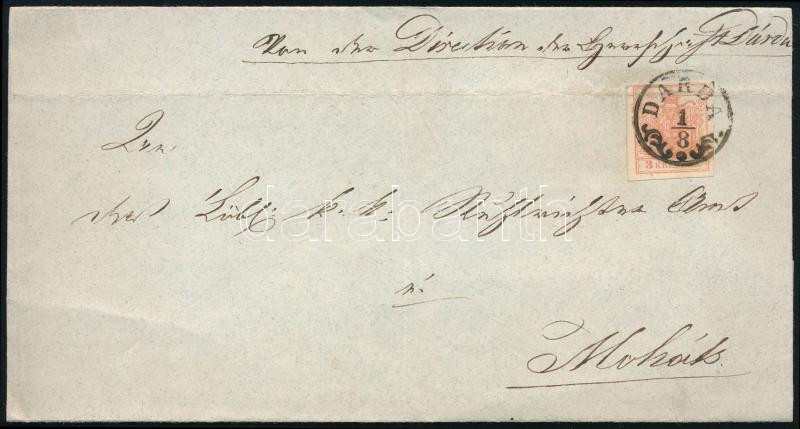 Von der Direction der Herrschaft Dárda
DARDA
1
8
3 KREUZER
An
das Löbl: k. k: Stuhlrichter Amt
darabanth
z.
Mohács